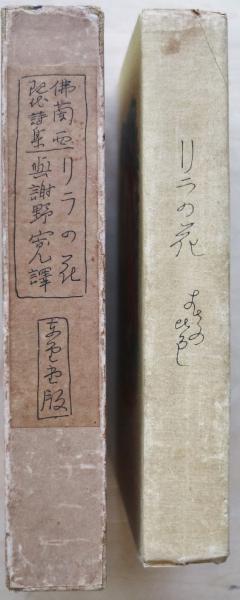 佛蘭西 リラの花
近代詩集 與謝野寛譯
東雲堂版
リラの花
よさの
ひろし